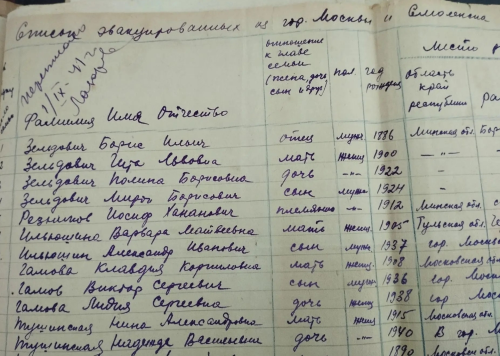 Список эвакуированных из гор. Москвы и Смоленска
1/IX-41 г.
отношение к главе семьи (жена, дочь, сын и друг.)
пол.
год рождения
Место
область край республика
Фамилия Имя Отчество
Зельдович Борис Ильич отец муж 1886 Минская обл. Бор
Зельдович Ита Львовна мать женщ 1900 -"-
Зельдович Полина Борисовна дочь -"- 1922 -"-
Зельдович Мирон Борисович сын муж 1924 -"-
Иосиф Хананович племянник -"- 1912 Минская обл. с
Ильюшина Варвара Матвеевна мать женщ. 1905 Тульская обл.
Ильюшин Александр Иванович сын муж 1937 гор. Москва
Гамова Клавдия Корниловна мать женщ. 1908 Московская обл
Гамов Виктор Сергеевич сын муж 1936 гор. М
Гамова Лидия Сергеевна дочь женщ 1938 гор Мос
Тушинская Нина Александровна мать женщ 1915 Московская обл
Тушинская Надежда дочь -"- 1940 В гор. М
1890 Московск. обл.